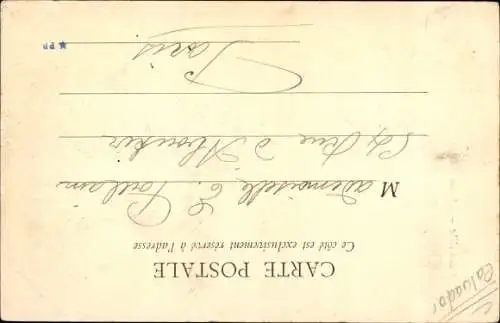 CARTE POSTALE
Ce côté est exclusivement réservé à l'adresse
Mademoiselle E. Poullain
Rue d'Aboukir
Paris
★ PP
Calvados